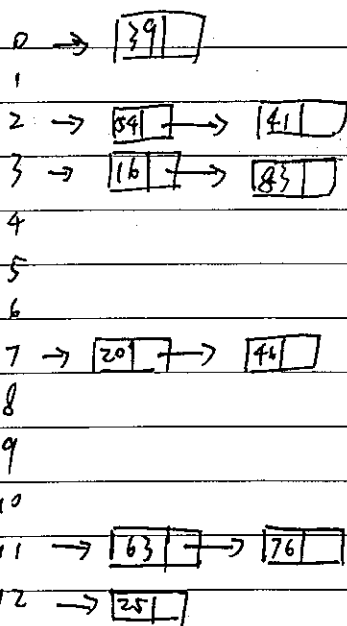 0 → 39
1
2 → 54 → 41
3 → 16 → 83
4
5
6
7 → 20 → 46
8
9
10
11 → 63 → 76
12 → 25